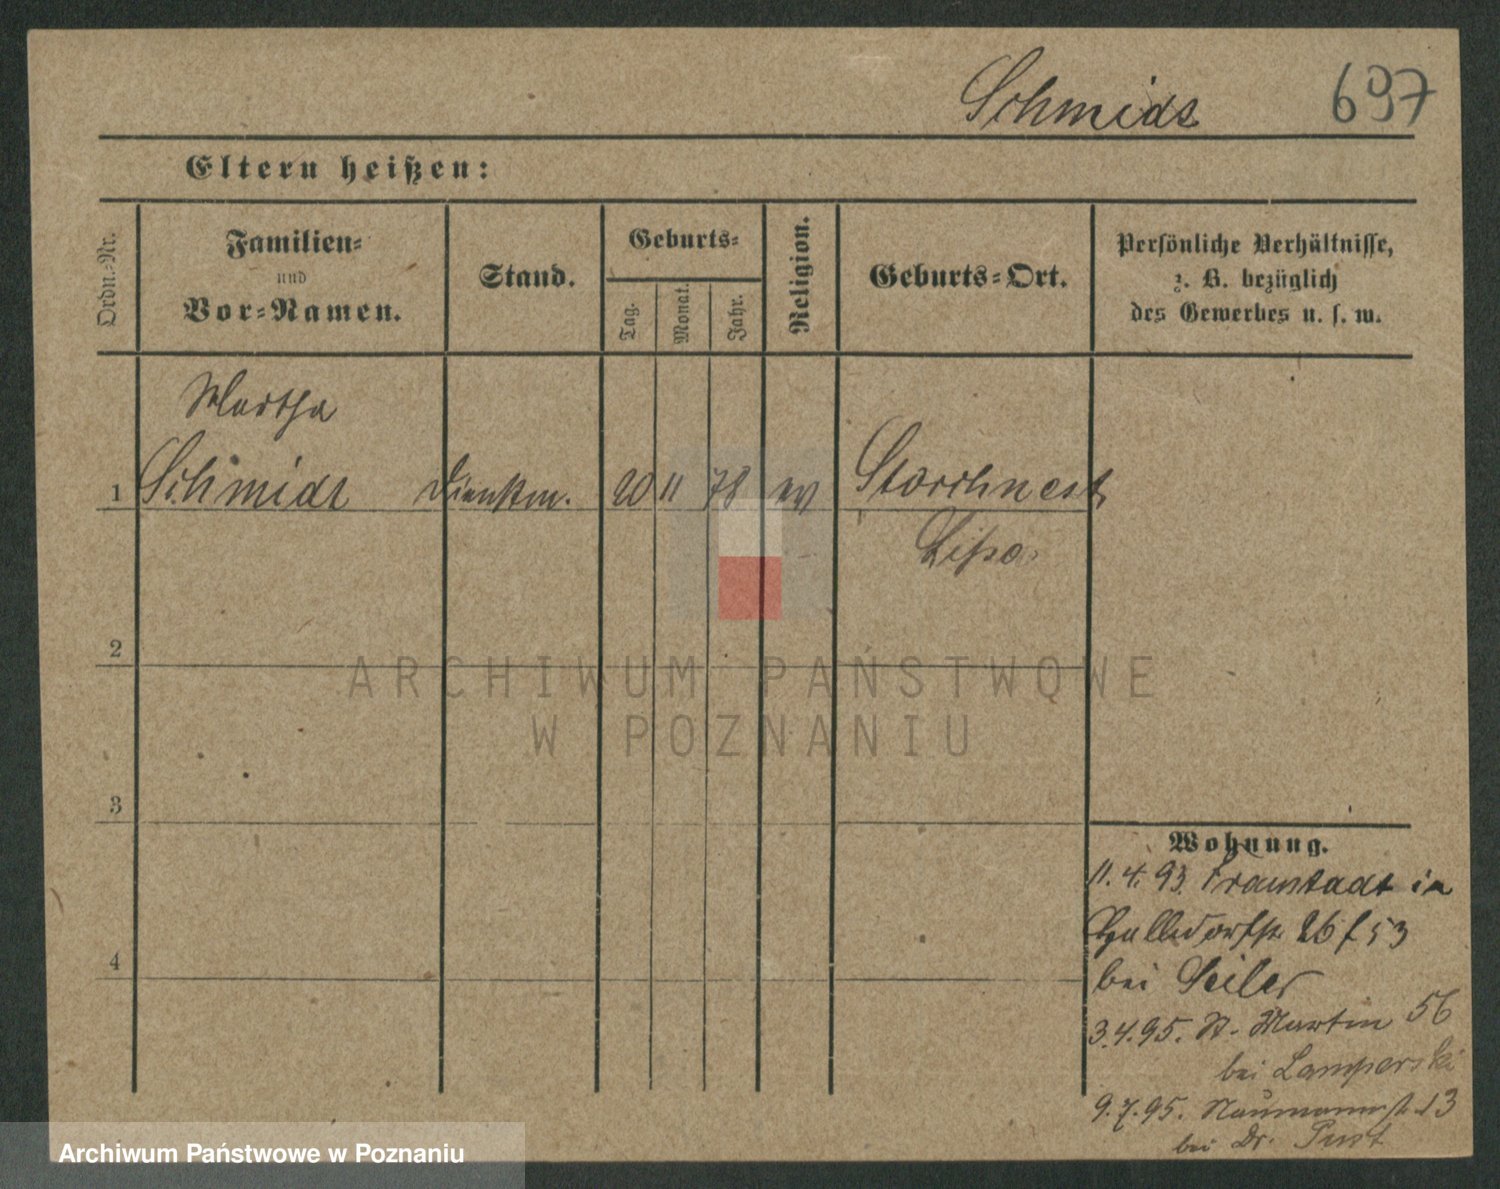 Schmidt 697
Eltern heißen:
Ordn.-Nr.
Familien-
und
Vor-Namen.
Stand.
Geburts-
Tag.
Monat.
Jahr.
Religion.
Geburts-Ort.
Persönliche Verhältnisse,
z. B. bezüglich
des Gewerbes u. s. w.
Martha
1 Schmidt Dienstm. 20 11 78 ev Storchnest
Lissa
2
3
4
Wohnung.
11.4.93. Fraustadt in
26 f 53
bei Seiler
3.4.95. St. Martin 56
bei Lamperski
9.7.95. Naumannst. 13
bei Dr.
ARCHIWUM PAŃSTWOWE
W POZNANIU
Archiwum Państwowe w Poznaniu